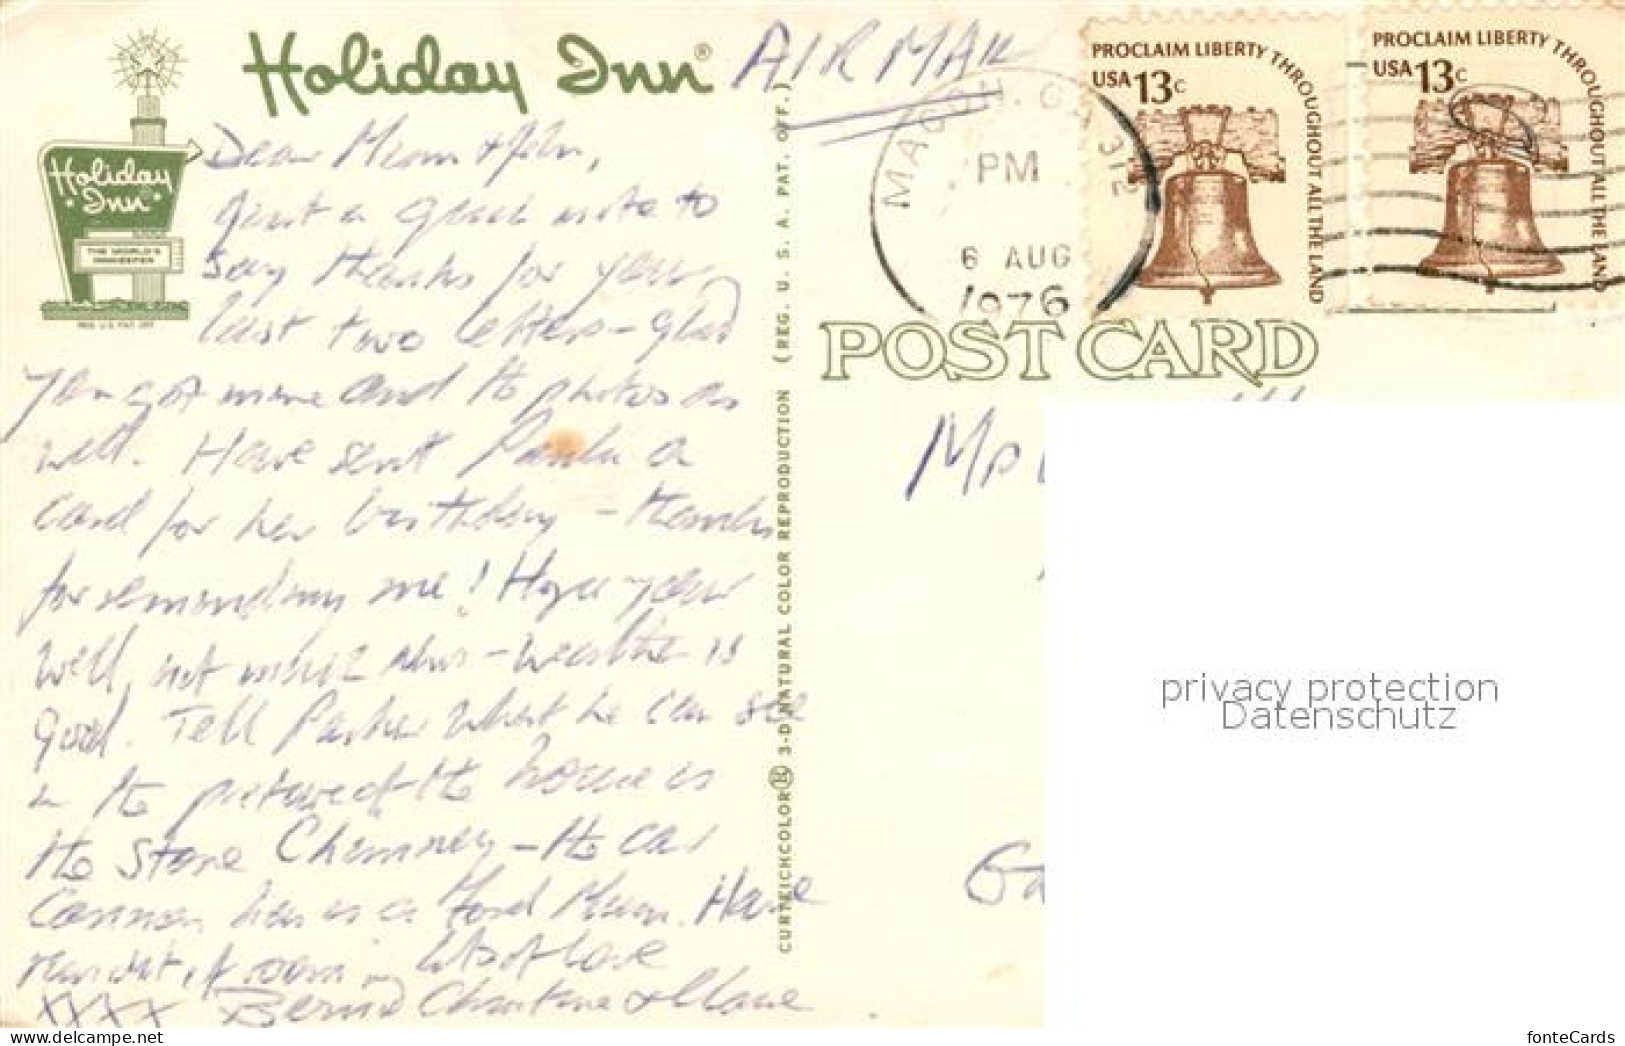 Holiday Inn®
AIR MAIL
Holiday
Inn®
THE WORLD'S
INNKEEPER
REG. U.S. PAT. OFF.
Dear Mum & John,
Just a quick note to
say thanks for your
last two letters - glad
you got mine and the photos as
well. Have sent a
card for her birthday - thanks
for reminding me! Hope your
well, not much - weather is
good. Tell what he can see
in the picture of the house is
the stone Chimney - the car
Coming is a Ford Mum. Have
it room. Lots of love
XXXX Bernd Christine &
CURTEICHCOLOR® 3-D NATURAL COLOR REPRODUCTION (REG. U. S. A. PAT. OFF.)
MACON, GA 312
PM
6 AUG
1976
PROCLAIM LIBERTY THROUGHOUT ALL THE LAND
USA 13c
PROCLAIM LIBERTY THROUGHOUT ALL THE LAND
USA 13c
POST CARD
privacy protection
Datenschutz
fonteCards